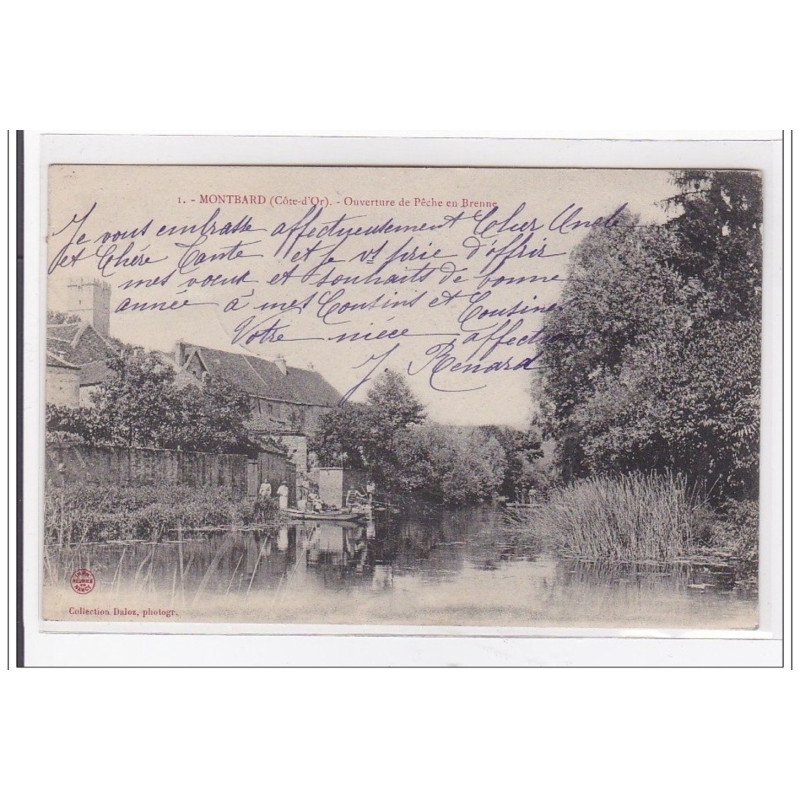 1. - MONTBARD (Côte-d'Or). - Ouverture de Pêche en Brenne
Je vous embrasse affectueusement Cher Oncle
et Chère Tante et je vs prie d'offrir
mes vœux et souhaits de bonne
année à mes Cousins et Cousines
Votre nièce affection
J Renard
Collection Daloz, photogr.